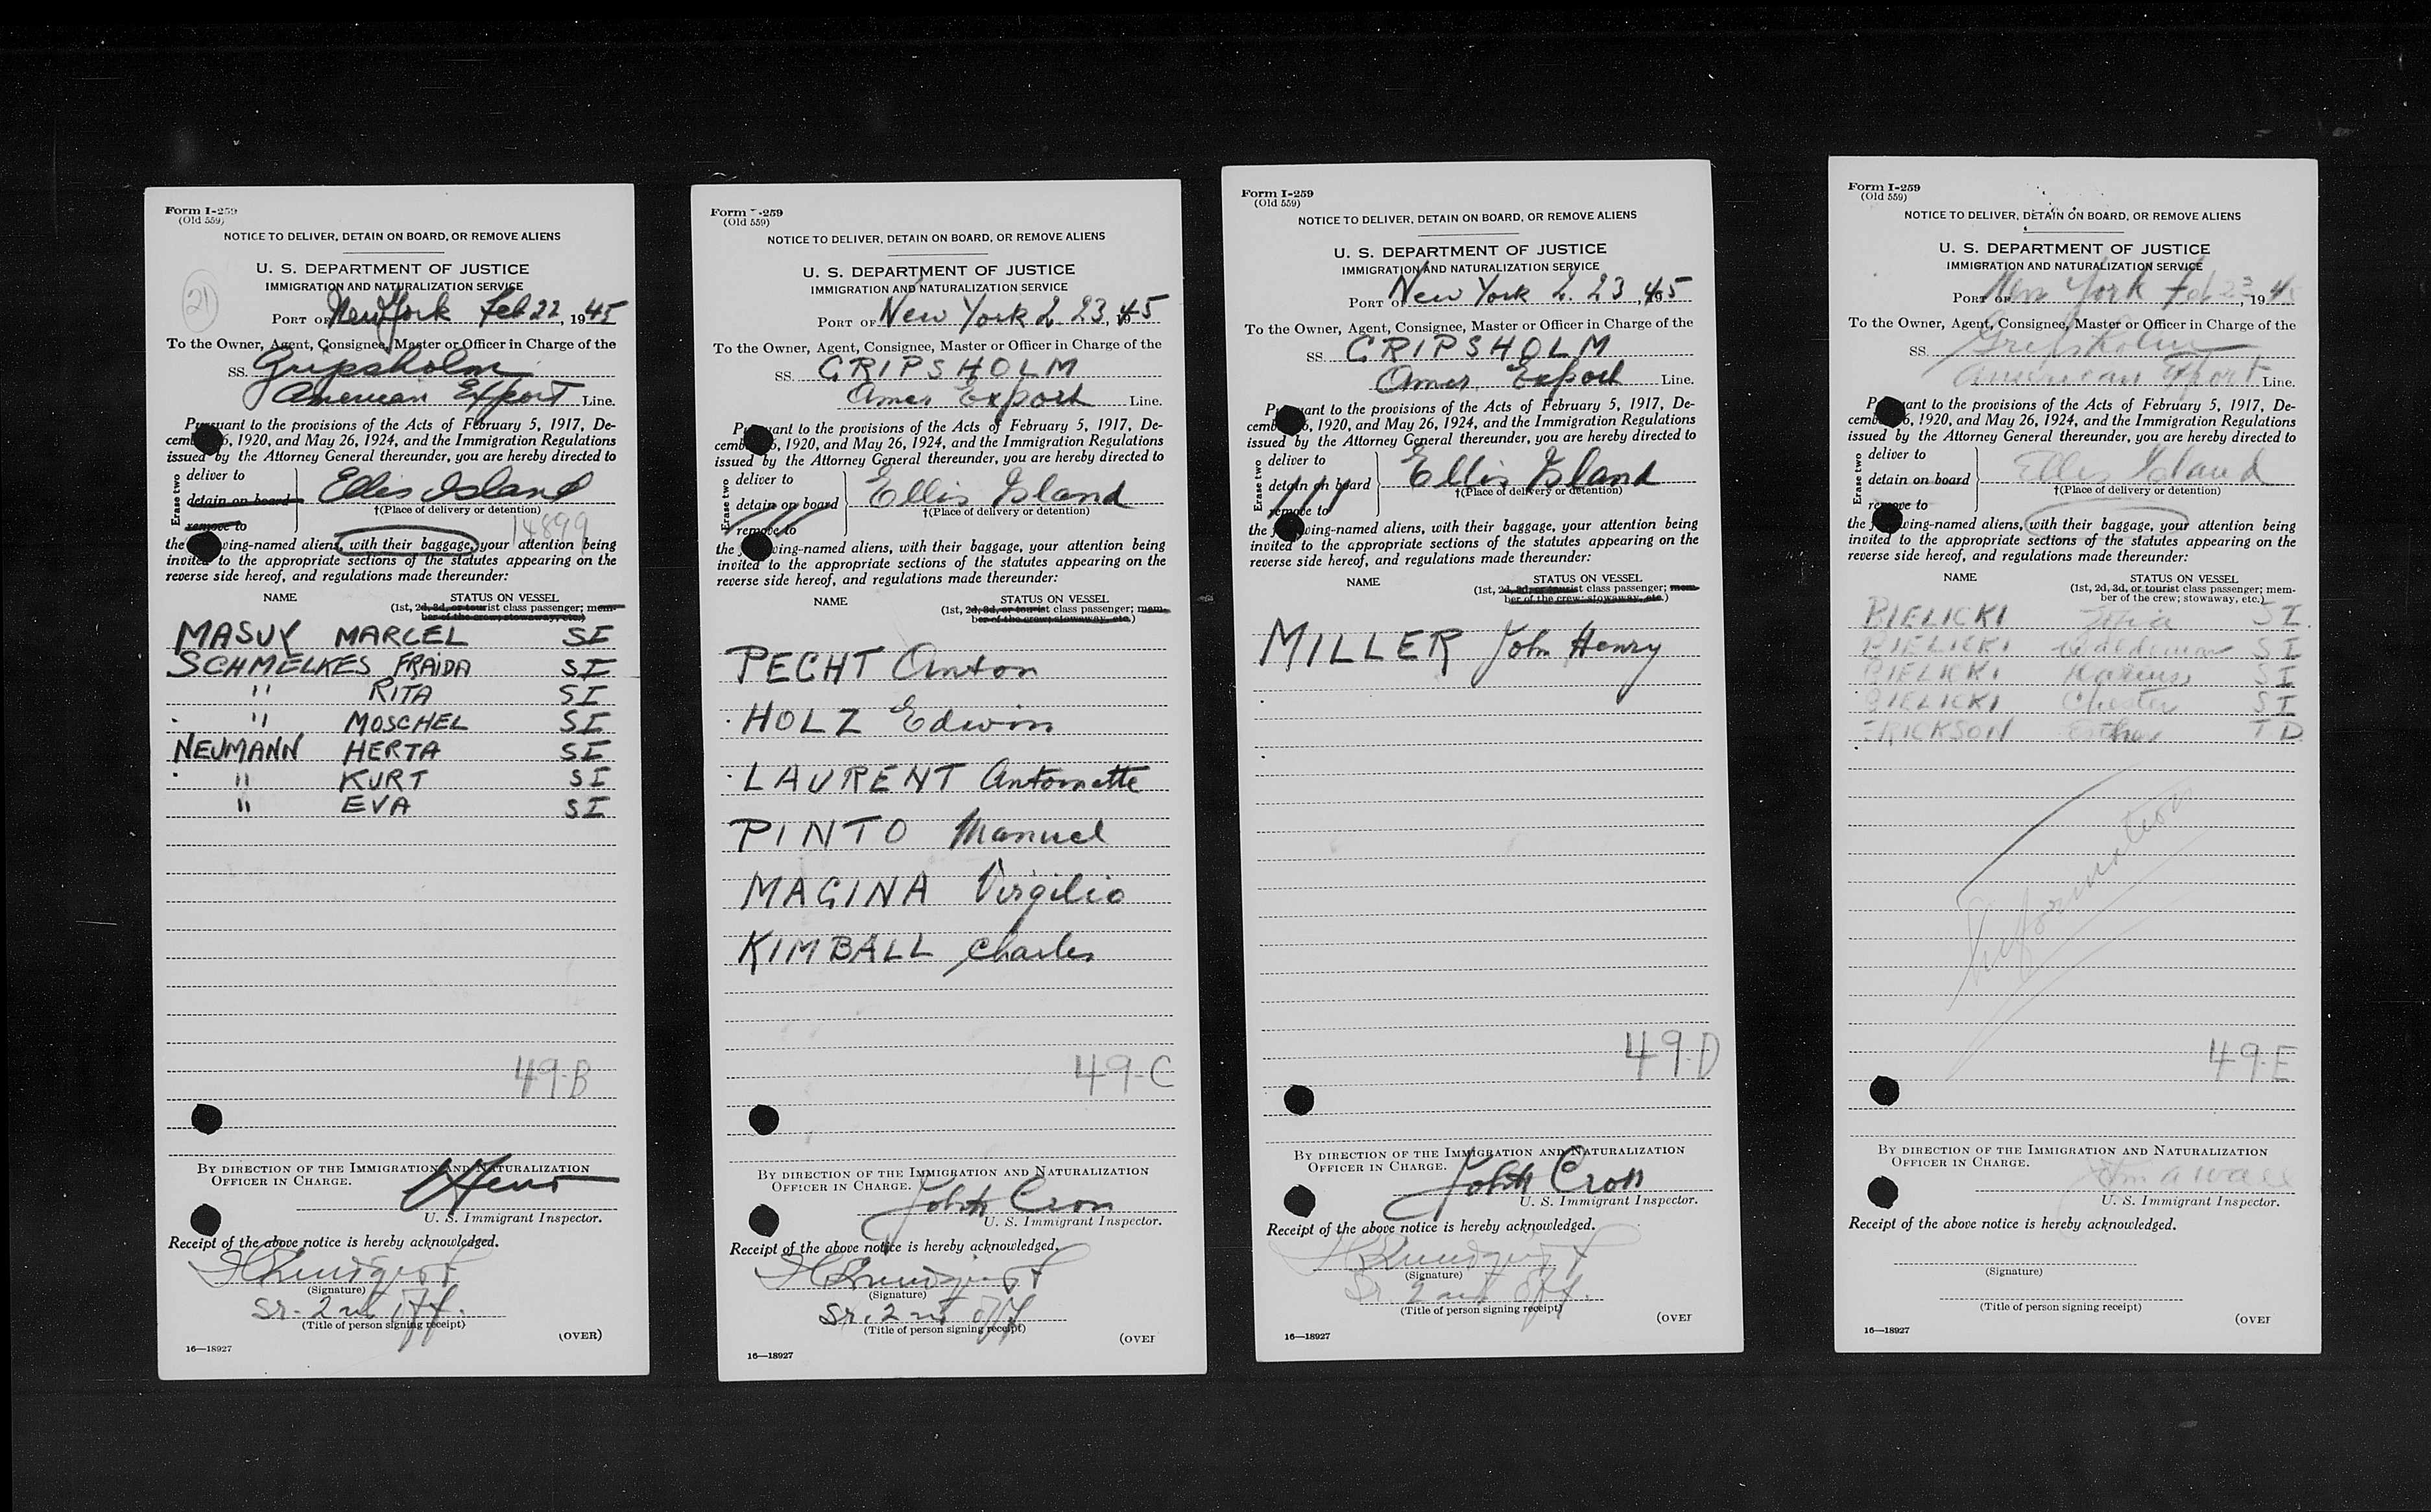 Form I-259
(Old 559)
NOTICE TO DELIVER, DETAIN ON BOARD, OR REMOVE ALIENS
U. S. DEPARTMENT OF JUSTICE
IMMIGRATION AND NATURALIZATION SERVICE
21
PORT OF New York Feb 22, 1945
To the Owner, Agent, Consignee, Master or Officer in Charge of the
SS. Gripsholm
American Export Line.
Pursuant to the provisions of the Acts of February 5, 1917, De-
cember 6, 1920, and May 26, 1924, and the Immigration Regulations
issued by the Attorney General thereunder, you are hereby directed to
Erase two
deliver to
detain on board
remove to
Ellis Island
†(Place of delivery or detention)
14899
the following-named aliens, with their baggage, your attention being
invited to the appropriate sections of the statutes appearing on the
reverse side hereof, and regulations made thereunder:
NAME STATUS ON VESSEL
(1st, 2d, 3d, or tourist class passenger; mem-
ber of the crew; stowaway, etc.)
MASUY MARCEL SI
SCHMELKES FRAIDA SI
" RITA SI
" MOSCHEL SI
NEUMANN HERTA SI
" KURT SI
" EVA SI
49-B
BY DIRECTION OF THE IMMIGRATION AND NATURALIZATION
OFFICER IN CHARGE.
U. S. Immigrant Inspector.
Receipt of the above notice is hereby acknowledged.
(Signature)
Sr. 2nd Off.
(Title of person signing receipt)
(OVER)
16—18927
Form I-259
(Old 559)
NOTICE TO DELIVER, DETAIN ON BOARD, OR REMOVE ALIENS
U. S. DEPARTMENT OF JUSTICE
IMMIGRATION AND NATURALIZATION SERVICE
PORT OF New York 2. 23, 1945
To the Owner, Agent, Consignee, Master or Officer in Charge of the
SS. GRIPSHOLM
Amer Export Line.
Pursuant to the provisions of the Acts of February 5, 1917, De-
cember 6, 1920, and May 26, 1924, and the Immigration Regulations
issued by the Attorney General thereunder, you are hereby directed to
Erase two
deliver to
detain on board
remove to
Ellis Island
†(Place of delivery or detention)
the following-named aliens, with their baggage, your attention being
invited to the appropriate sections of the statutes appearing on the
reverse side hereof, and regulations made thereunder:
NAME STATUS ON VESSEL
(1st, 2d, 3d, or tourist class passenger; mem-
ber of the crew; stowaway, etc.)
PECHT Anton
HOLZ Edwin
LAURENT Antoinette
PINTO Manuel
MAGINA Virgilio
KIMBALL Charles
49-C
BY DIRECTION OF THE IMMIGRATION AND NATURALIZATION
OFFICER IN CHARGE.
John Cron
U. S. Immigrant Inspector.
Receipt of the above notice is hereby acknowledged.
(Signature)
Sr. 2nd Off
(Title of person signing receipt)
(OVER
16—18927
Form I-259
(Old 559)
NOTICE TO DELIVER, DETAIN ON BOARD, OR REMOVE ALIENS
U. S. DEPARTMENT OF JUSTICE
IMMIGRATION AND NATURALIZATION SERVICE
PORT OF New York 2. 23, 1945
To the Owner, Agent, Consignee, Master or Officer in Charge of the
SS. GRIPSHOLM
Amer. Export Line.
Pursuant to the provisions of the Acts of February 5, 1917, De-
cember 6, 1920, and May 26, 1924, and the Immigration Regulations
issued by the Attorney General thereunder, you are hereby directed to
Erase two
deliver to
detain on board
remove to
Ellis Island
†(Place of delivery or detention)
the following-named aliens, with their baggage, your attention being
invited to the appropriate sections of the statutes appearing on the
reverse side hereof, and regulations made thereunder:
NAME STATUS ON VESSEL
(1st, 2d, 3d, or tourist class passenger; mem-
ber of the crew; stowaway, etc.)
MILLER John Henry
49-D
BY DIRECTION OF THE IMMIGRATION AND NATURALIZATION
OFFICER IN CHARGE.
John Cron
U. S. Immigrant Inspector.
Receipt of the above notice is hereby acknowledged.
(Signature)
Sr 2nd Off.
(Title of person signing receipt)
(OVER
16—18927
Form I-259
(Old 559)
NOTICE TO DELIVER, DETAIN ON BOARD, OR REMOVE ALIENS
U. S. DEPARTMENT OF JUSTICE
IMMIGRATION AND NATURALIZATION SERVICE
PORT OF New York Feb 23 1945
To the Owner, Agent, Consignee, Master or Officer in Charge of the
SS. Gripsholm
American Export Line.
Pursuant to the provisions of the Acts of February 5, 1917, De-
cember 6, 1920, and May 26, 1924, and the Immigration Regulations
issued by the Attorney General thereunder, you are hereby directed to
Erase two
deliver to
detain on board
remove to
Ellis Island
†(Place of delivery or detention)
the following-named aliens, with their baggage, your attention being
invited to the appropriate sections of the statutes appearing on the
reverse side hereof, and regulations made thereunder:
NAME STATUS ON VESSEL
(1st, 2d, 3d, or tourist class passenger; mem-
ber of the crew; stowaway, etc.)
BIELICKI SI
BIELICKI SI
BIELICKI SI
BIELICKI Chester SI
ERICKSON Esther T.D
Information
49-E
BY DIRECTION OF THE IMMIGRATION AND NATURALIZATION
OFFICER IN CHARGE.
U. S. Immigrant Inspector.
Receipt of the above notice is hereby acknowledged.
(Signature)
(Title of person signing receipt)
(OVER
16—18927